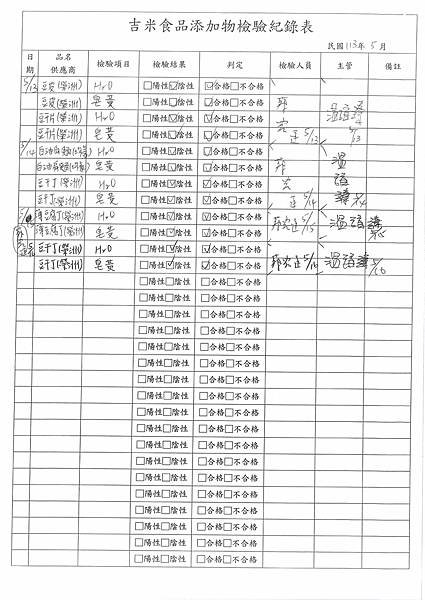 吉米食品添加物檢驗紀錄表
民國 113 年 5 月
日期 品名供應商 檢驗項目 檢驗結果 判定 檢驗人員 主管 備註
5/13 豆皮(榮洲) H₂O □陽性☑陰性 ☑合格□不合格
豆皮(榮洲) 皂黃 □陽性☑陰性 ☑合格□不合格
豆干片(榮洲) H₂O □陽性☑陰性 ☑合格□不合格
豆干片(榮洲) 皂黃 □陽性☑陰性 ☑合格□不合格 5/13 5/13
5/14 H₂O □陽性☑陰性 ☑合格□不合格
皂黃 □陽性☑陰性 ☑合格□不合格
豆干丁(榮洲) H₂O □陽性☑陰性 ☑合格□不合格
豆干丁(榮洲) 皂黃 □陽性☑陰性 ☑合格□不合格 5/14
H₂O □陽性☑陰性 ☑合格□不合格 5/15
皂黃 □陽性☑陰性 ☑合格□不合格
豆干丁(榮洲) H₂O □陽性☑陰性 ☑合格□不合格
豆干丁(榮洲) 皂黃 □陽性☑陰性 ☑合格□不合格 5/16 5/16
□陽性□陰性 □合格□不合格
□陽性□陰性 □合格□不合格
□陽性□陰性 □合格□不合格
□陽性□陰性 □合格□不合格
□陽性□陰性 □合格□不合格
□陽性□陰性 □合格□不合格
□陽性□陰性 □合格□不合格
□陽性□陰性 □合格□不合格
□陽性□陰性 □合格□不合格
□陽性□陰性 □合格□不合格
□陽性□陰性 □合格□不合格
□陽性□陰性 □合格□不合格
□陽性□陰性 □合格□不合格
□陽性□陰性 □合格□不合格
□陽性□陰性 □合格□不合格
□陽性□陰性 □合格□不合格
□陽性□陰性 □合格□不合格
□陽性□陰性 □合格□不合格